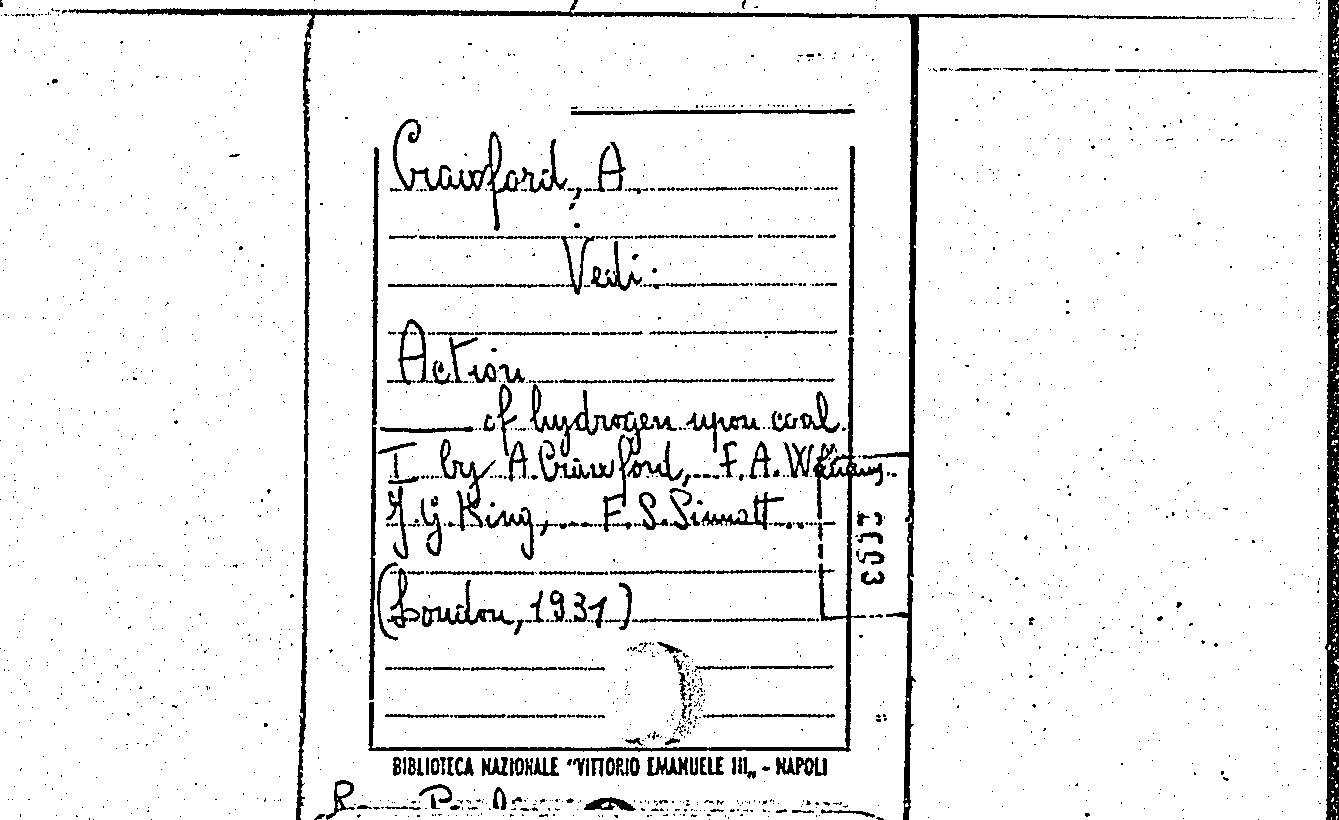 Crawford, A.
Vedi:
Action
—— of hydrogen upon coal.
I by A. Crawford, ... F. A. Williams...
J. G. King, ... F. S. Sinnatt...
(London, 1931)
BIBLIOTECA NAZIONALE "VITTORIO EMANUELE III„ - NAPOLI